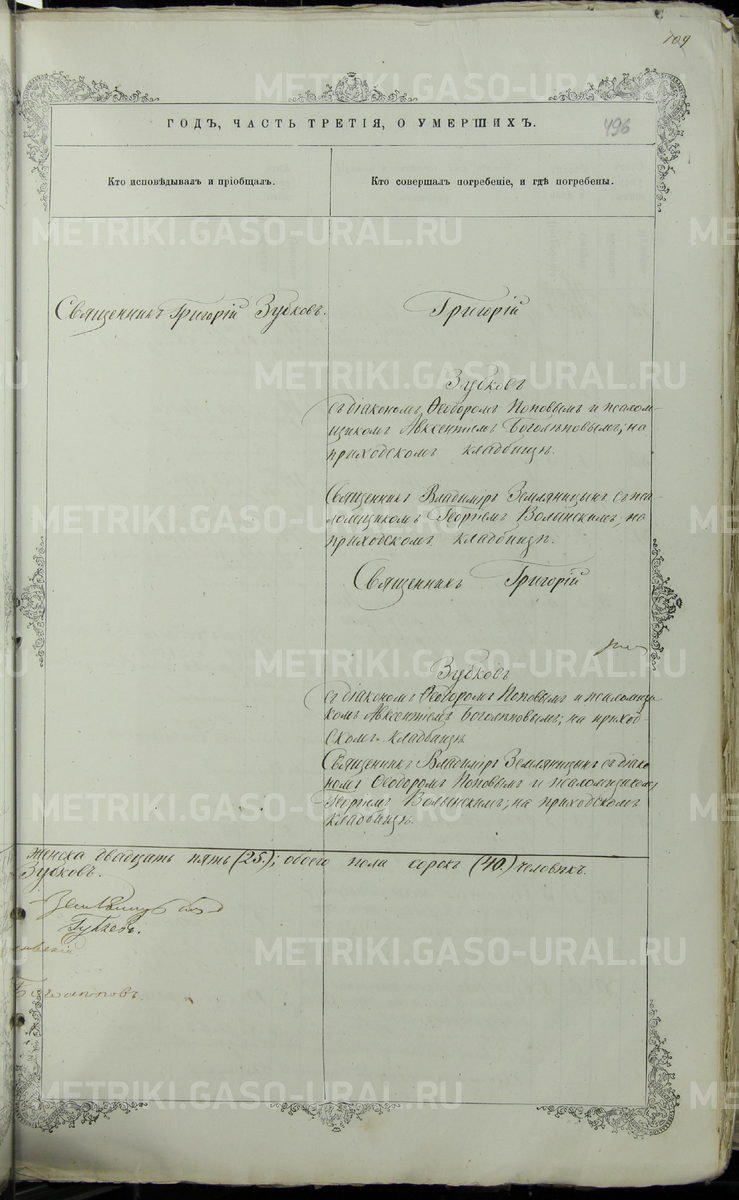 109
ГОДЪ, ЧАСТЬ ТРЕТІЯ, О УМЕРШИХЪ.
496
Кто исповѣдывалъ и пріобщалъ.
Кто совершалъ погребеніе, и гдѣ погребены.
Священникъ Григорій Зубковъ.
Григорій
Зубковъ
съ діакономъ Ѳеодоромъ Поповымъ и псалом-
щикомъ Авксентіемъ Боголѣповымъ; на
приходскомъ кладбищѣ.
Священникъ Владиміръ Земляницынъ съ пса-
ломщикомъ Георгіемъ Волынскимъ, на
приходскомъ кладбищѣ.
Священникъ Григорій
Зубковъ
съ діакономъ Ѳеодоромъ Поповымъ и псаломщи-
комъ Авксентіемъ Боголѣповымъ; на приход-
скомъ кладбищѣ.
Священникъ Владиміръ Земляницынъ съ діако-
номъ Ѳеодоромъ Поповымъ и псаломщикомъ
Георгіемъ Волынскимъ; на приходскомъ
кладбищѣ.
женска двадцать пять (25.); обоего пола сорокъ (40.) человѣкъ.
Зубковъ.
METRIKI.GASO-URAL.RU